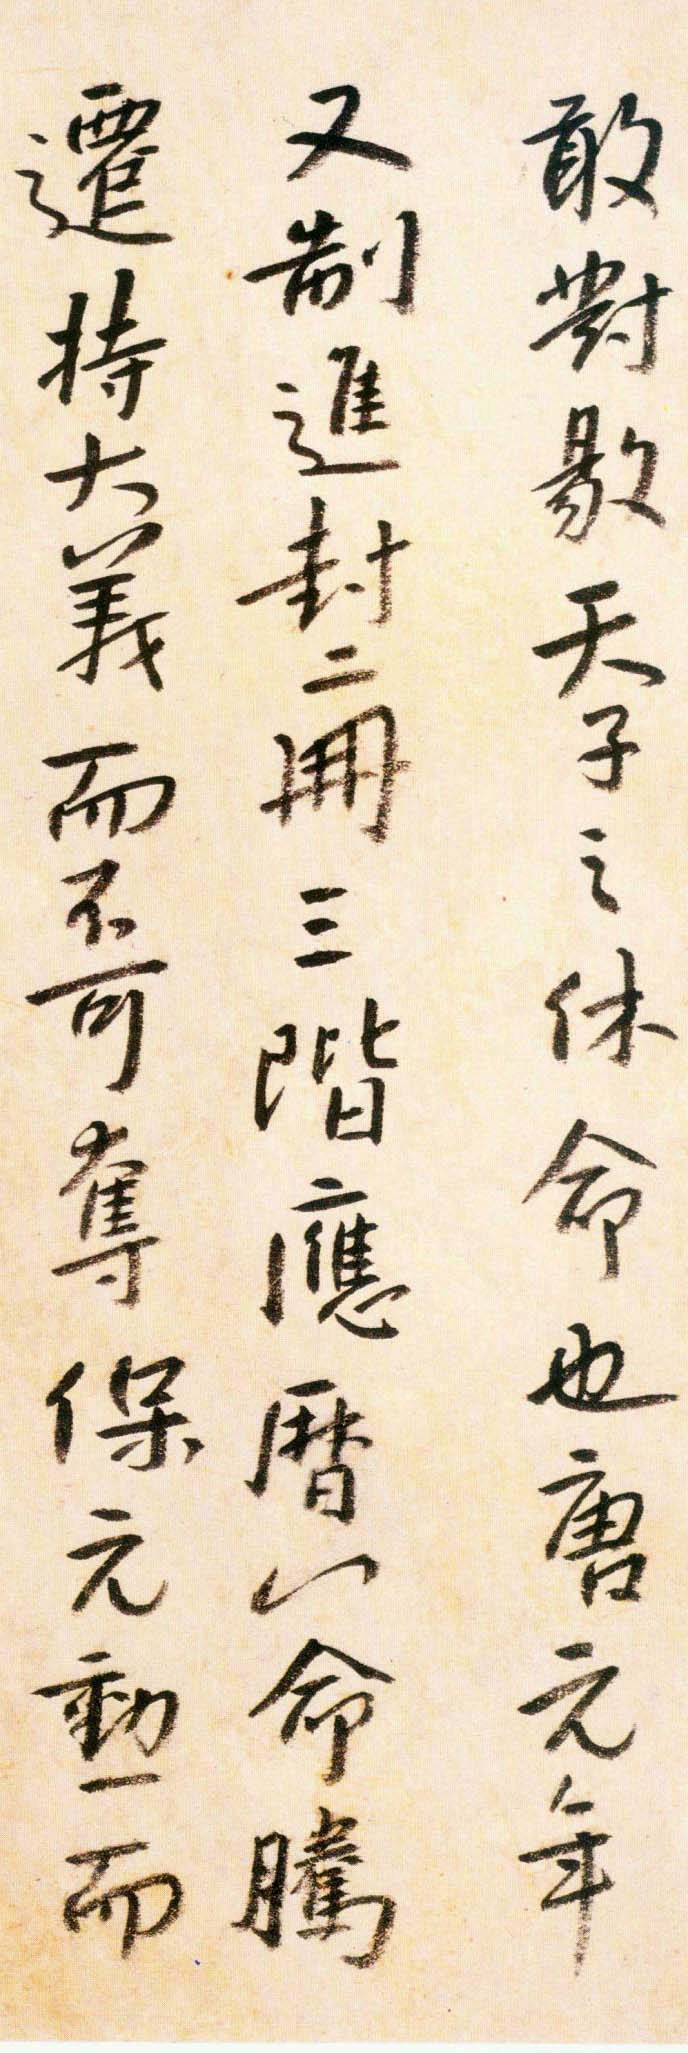 敢對敭天子之休命也唐元年
又制進封二冊三階應暦八命騰
遷持大義而不可奪保元勳而